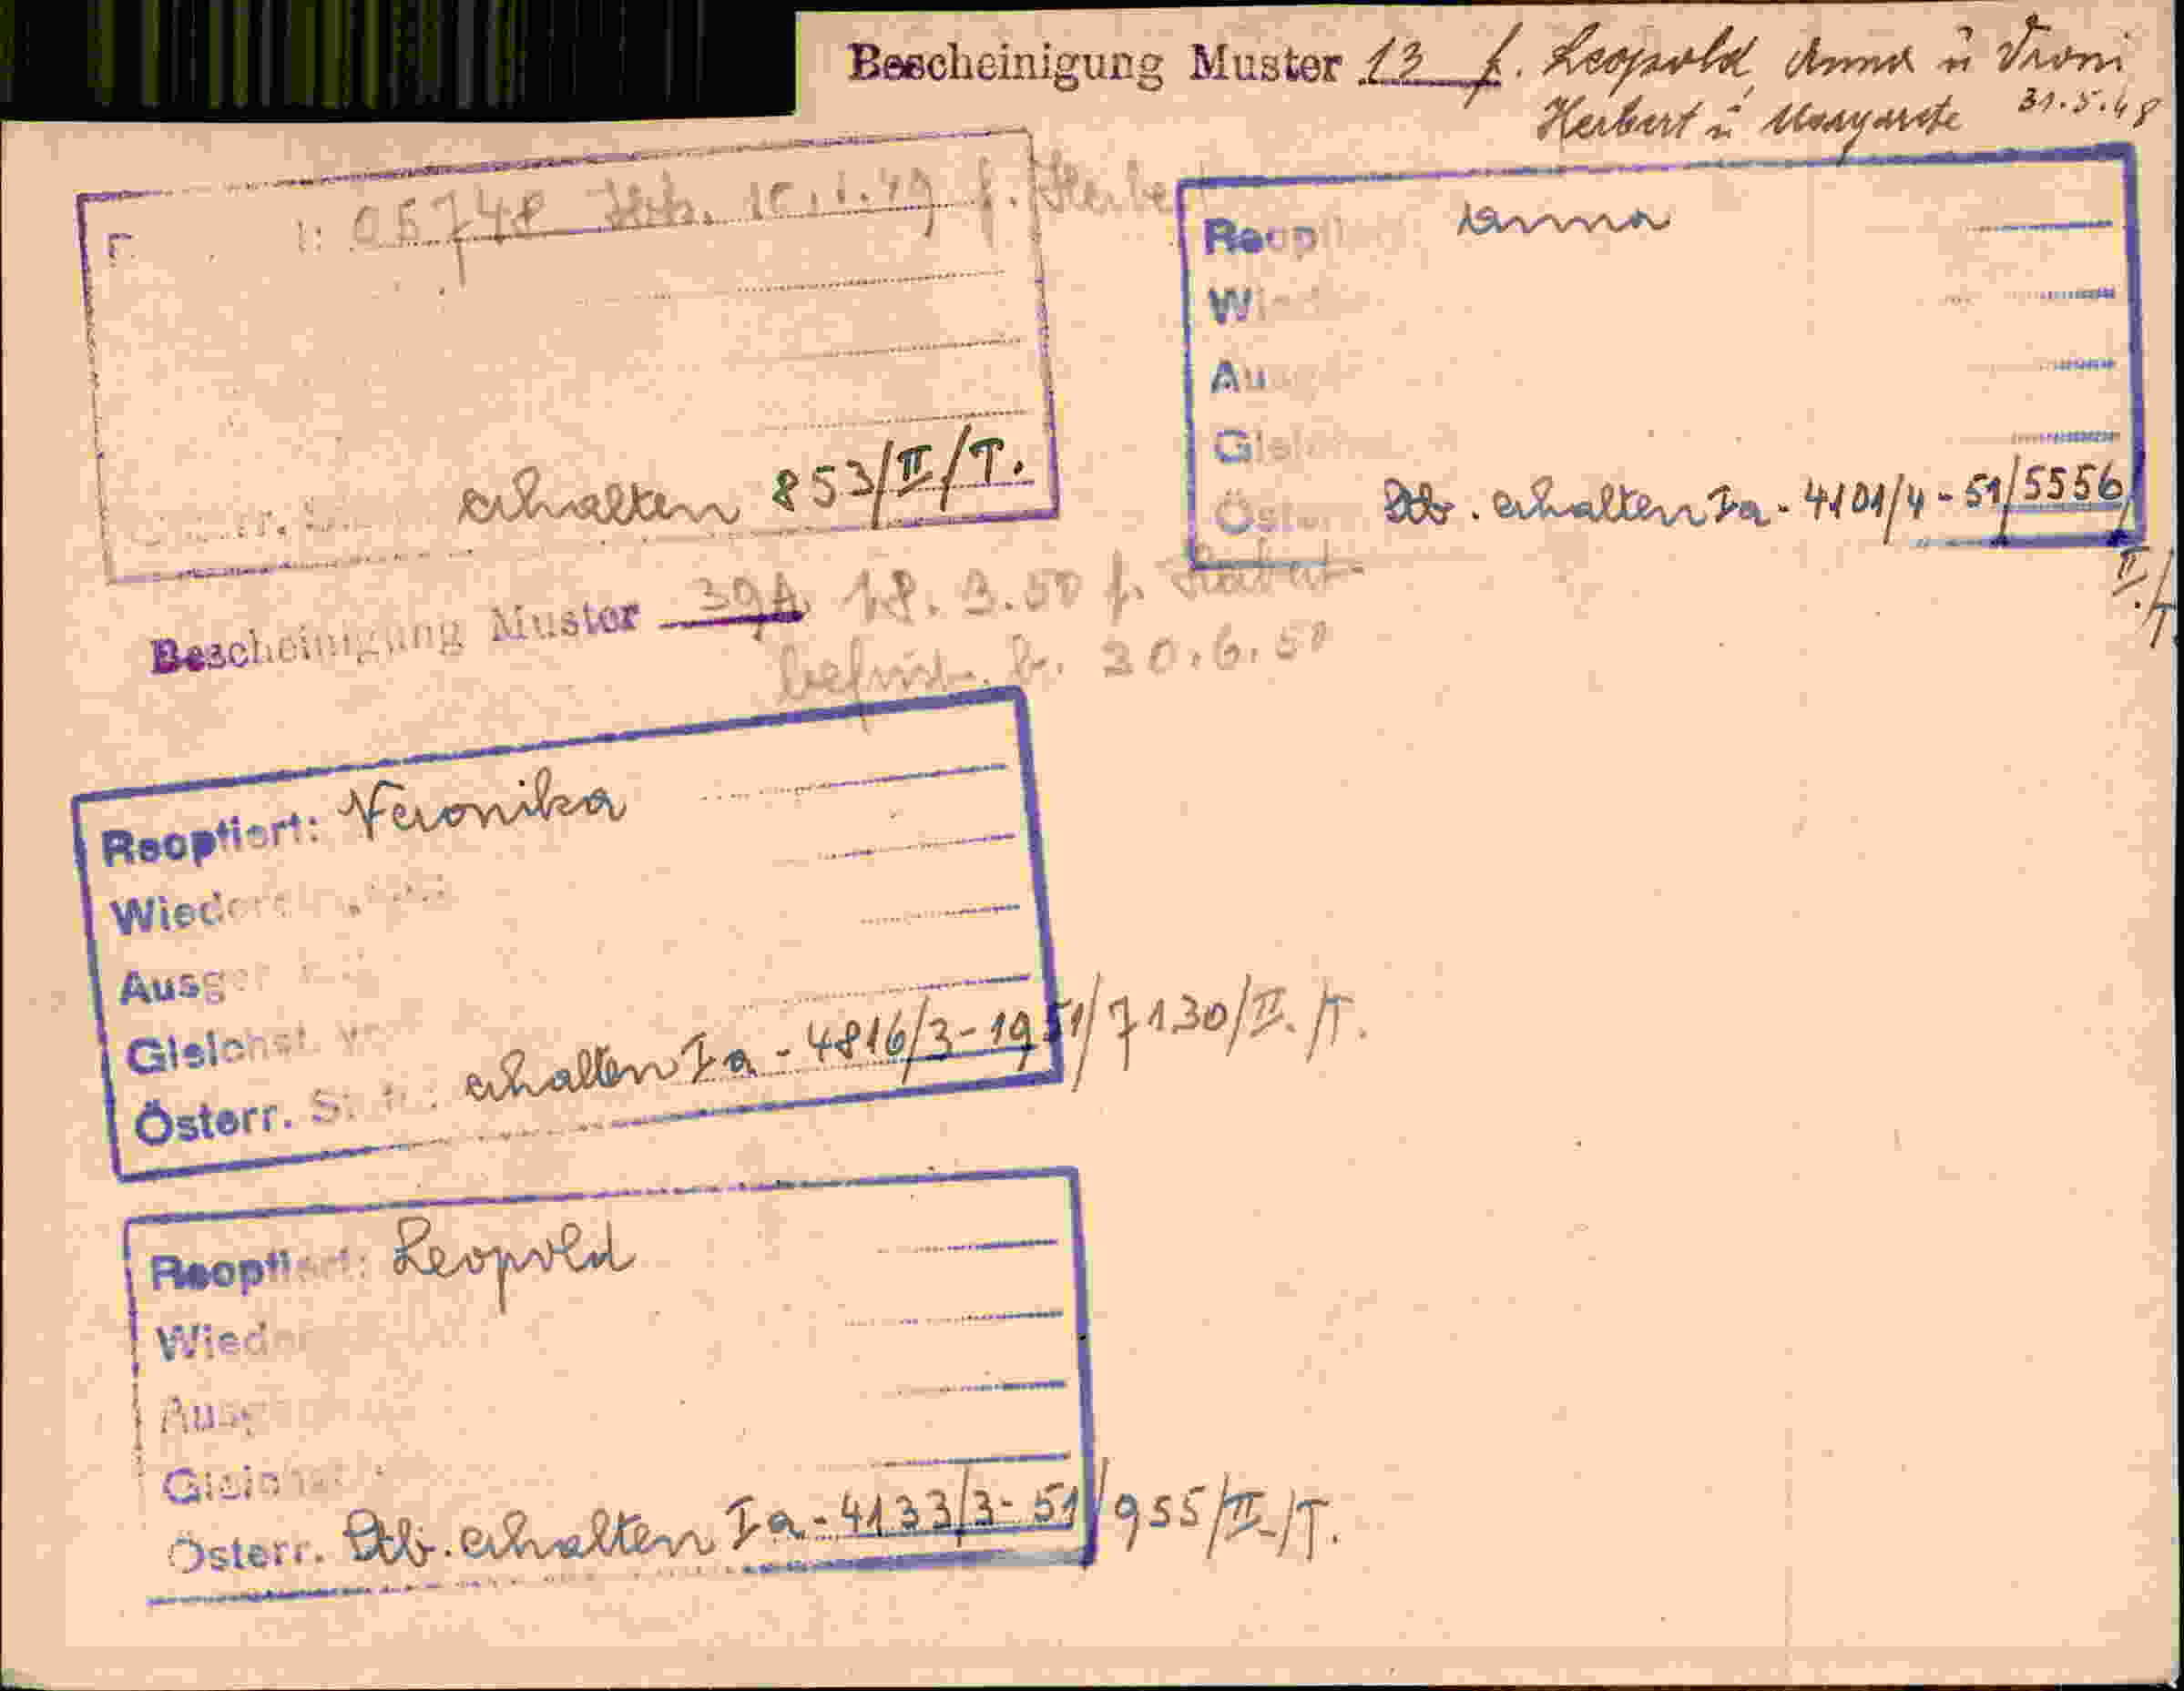 Bescheinigung Muster 13 f. Leopold, Anna u Vroni
Herbert u Margarete 31.5.48
05748 10.1.49 f.
erhalten 853/II/T.
Anna
W
Au
Stb. erhalten Ia - 4101/4 - 51/5556/
II/
T.
Bescheinigung Muster 39A 18.3.50 f. Herbert
20.6.50
Reoptiert: Veronika
Wied
Ausg
Gleich
Österr. erhalten Ia - 4816/3-1951/7130/II./T.
Reopti Leopold
Wied
Ausg
Gleich
Österr. Stb. erhalten Ia - 4133/3-51/955/II./T.